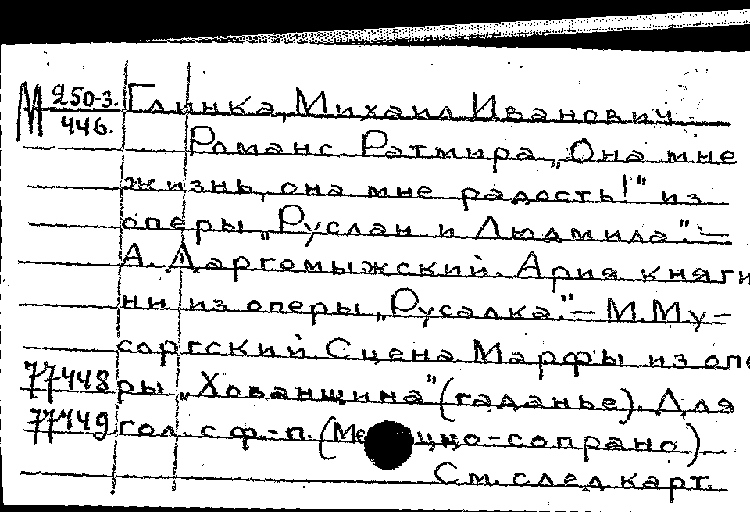 М 250-3. Глинка, Михаил Иванович.
446.
Романс Ратмира „Она мне
жизнь, она мне радость!" из
оперы „Руслан и Людмила". –
А. Даргомыжский. Ария княги
ни из оперы „Русалка". – М. Му-
соргский Сцена Марфы из опе
77448 ры „Хованщина" (гаданье). Для
77449 гол. с ф.-п. (Ме ццо-сопрано)
См. след карт.